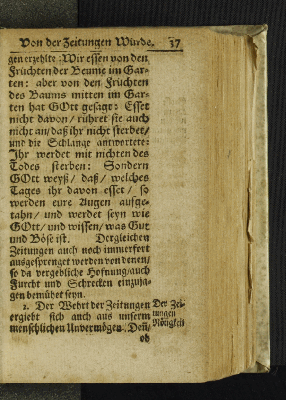 Von der Zeitungen Würde. 37
gen erzehlte: Wir essen von den
Früchten der Beume im Gar-
ten: aber von den Früchten
des Baums mitten im Gar-
ten hat GOtt gesagt: Esset
nicht davon / rühret sie auch
nicht an/ daß ihr nicht sterbet/
und die Schlange antwortete:
Ihr werdet mit nichten des
Todes sterben: Sondern
GOtt weyß / daß / welches
Tages ihr davon esset / so
werden eure Augen aufge-
tahn / und werdet seyn wie
GOtt/ und wissen/ was Gut
und Böse ist. Dergleichen
Zeitungen auch noch immerfort
ausgesprenget werden von denen/
so da vergebliche Hofnung/auch
Furcht und Schrecken einzuja-
gen bemühet seyn.
2. Der Wehrt der Zeitungen
ergiebt sich auch aus unserm
menschlichen Unvermögen. Deñ/
ob
Der Zei-
tungen
Nötigkeit